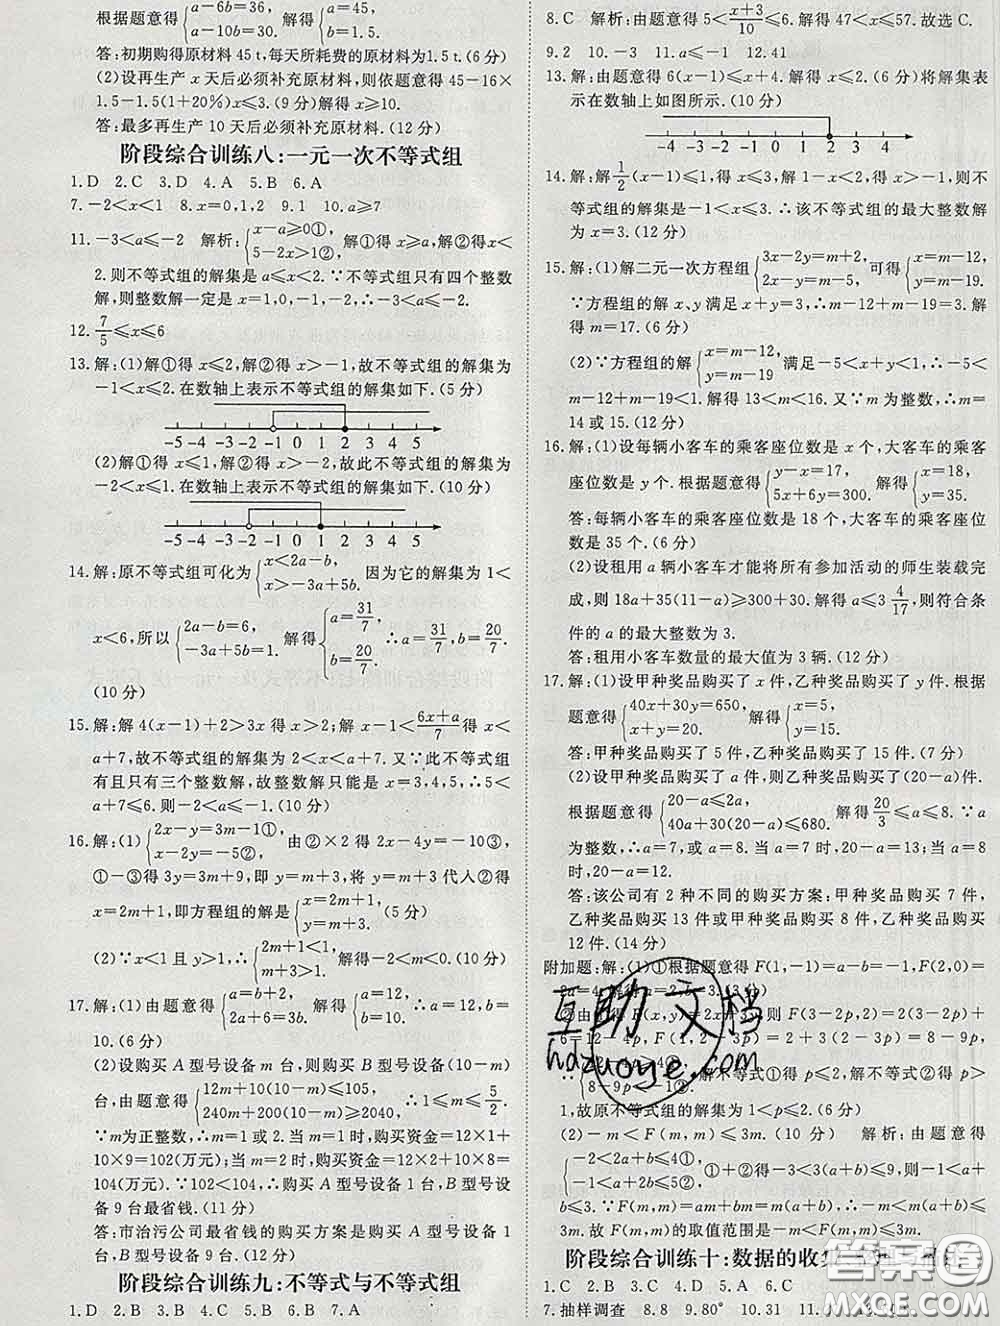 根据题意得{a-6b=36, a-10b=30. 解得{a=45, b=1.5.
答:初期购得原材料45 t,每天所耗费的原材料为1.5 t.(6分)
(2)设再生产 x 天后必须补充原材料,则依题意得 45-16×
1.5-1.5(1+20%)x≤3.(9分)解得 x≥10.
答:最多再生产 10 天后必须补充原材料.(12分)
阶段综合训练八:一元一次不等式组
1.D 2.C 3.D 4.A 5.B 6.A
7.-2<x<1 8.x=0,1,2 9.1 10.a≥7
11.-3<a≤-2 解析:{x-a≥0①, 5-2x>1②, 解①得 x≥a,解②得 x<
2.则不等式组的解集是 a≤x<2.∵不等式组只有四个整数
解,则整数解一定是 x=1,0,-1,-2.∴-3<a≤-2.
12. 7/5≤x≤6
13.解:(1)解①得 x≤2,解②得 x>-1,故不等式组的解集为
-1<x≤2.在数轴上表示不等式组的解集如下.(5分)
-5 -4 -3 -2 -1 0 1 2 3 4 5
(2)解①得 x≤1,解②得 x>-2,故此不等式组的解集为
-2<x≤1.在数轴上表示不等式组的解集如下.(10分)
-5 -4 -3 -2 -1 0 1 2 3 4 5
14.解:原不等式组可化为{x<2a-b, x>-3a+5b. 因为它的解集为 1<
x<6,所以{2a-b=6, -3a+5b=1. 解得{a=31/7, b=20/7. ∴a=31/7,b=20/7.
(10分)
15.解:解 4(x-1)+2>3x 得 x>2;解 x-1<(6x+a)/7 得 x<
a+7,故不等式组的解集为 2<x<a+7.又∵此不等式组
有且只有三个整数解,故整数解只能是 x=3,4,5,∴5<
a+7≤6.则-2<a≤-1.(10分)
16.解:(1){2x-y=3m-1①, x-2y=-5②, 由②×2 得 2x-4y=-10③,
①-③得 3y=3m+9,即 y=m+3,将 y=m+3 代入②得
x=2m+1,即方程组的解是{x=2m+1, y=m+3. (5分)
(2)∵x<1 且 y>1,∴{2m+1<1, m+3>1. 解得-2<m<0.(10分)
17.解:(1)由题意得{a=b+2, 2a+6=3b. 解得{a=12, b=10. ∴a=12,b=
10.(6分)
(2)设购买 A 型号设备 m 台,则购买 B 型号设备(10-m)
台,由题意得{12m+10(10-m)≤105, 240m+200(10-m)≥2040, ∴1≤m≤5/2.
∵m为正整数,∴m=1 或 2.当 m=1 时,购买资金=12×1
+10×9=102(万元);当 m=2 时,购买资金=12×2+10×8=
104(万元).∵102<104,∴购买 A 型号设备 1 台,B 型号设
备 9 台最省钱.(11分)
答:市治污公司最省钱的购买方案是购买 A 型号设备 1
台,B 型号设备 9 台.(12分)
阶段综合训练九:不等式与不等式组
1.D 2.B 3.D 4.C 5.B 6.B 7.A
8.C 解析:由题意得 5<(x+3)/10≤6.解得 47<x≤57.故选 C.
9.2 10.-3 11.a≤-1 12.41
13.解:由题意得 6(x-1)≤x+4.解得 x≤2.(6分)将解集表
示在数轴上如图所示.(10分)
-4 -3 -2 -1 0 1 2 3 4
14.解:解 1/2(x-1)≤1,得 x≤3,解 1-x<2,得 x>-1,则不
等式组的解集是-1<x≤3.∴该不等式组的最大整数解
为 x=3.(12分)
15.解:(1)解二元一次方程组{3x-2y=m+2, 2x-y=m-5, 可得{x=m-12, y=m-19.
∵方程组的解 x、y 满足 x+y=3,∴m-12+m-19=3.解
得 m=17.(6分)
(2)∵方程组的解{x=m-12, y=m-19 满足-5<x+y<1,∴-5<
m-12+m-19<1.解得 13<m<16.又∵m 为整数,∴m=
14 或 15.(12分)
16.解:(1)设每辆小客车的乘客座位数是 x 个,大客车的乘客
座位数是 y 个.根据题意得{y-x=17, 5x+6y=300. 解得{x=18, y=35.
答:每辆小客车的乘客座位数是 18 个,大客车的乘客座位
数是 35 个.(6分)
(2)设租用 a 辆小客车才能将所有参加活动的师生装载完
成,则 18a+35(11-a)≥300+30.解得 a≤3 4/17,则符合条
件的 a 的最大整数为 3.
答:租用小客车数量的最大值为 3 辆.(12分)
17.解:(1)设甲种奖品购买了 x 件,乙种奖品购买了 y 件.根据
题意得{40x+30y=650, x+y=20. 解得{x=5, y=15.
答:甲种奖品购买了 5 件,乙种奖品购买了 15 件.(7分)
(2)设甲种奖品购买了 a 件,则乙种奖品购买了(20-a)件.
根据题意得{20-a≤2a, 40a+30(20-a)≤680. 解得 20/3≤a≤8.∵a
为整数,∴a=7,或 a=8.当 a=7 时,20-a=13;当 a=8
时,20-a=12.
答:该公司有 2 种不同的购买方案:甲种奖品购买 7 件,
乙种奖品购买 13 件或甲种奖品购买 8 件,乙种奖品购买
12 件.(14分)
附加题:解:(1)①根据题意得 F(1,-1)=a-b=-1,F(2,0)=
2a=4.解得 a=2,b=3.(3分)
②由①得 F(x,y)=2x+3y,则 F(3-2p,2)=2(3-2p)
+6=12-4p,F(1,2-3p)=2+3(2-3p)=8-9p.
8-9p<-1②. 解不等式①得 p≤2,解不等式②得 p>
1,故原不等式组的解集为 1<p≤2.(6分)
(2)-m<F(m,m)≤3m.(10分) 解析:由题意得
{-2<2a+b≤4①, -1<-a+2b≤5②, ①+②得-3<3(a+b)≤9,则-1<a+
b≤3.∵F(m,m)=am+bm=m(a+b),∴-m<m(a+b)≤
3m.故 F(m,m)的取值范围是-m<F(m,m)≤3m.
阶段综合训练十:数据的收集
1.C 2.B 3.A 4.D 5.C 6.C
7.抽样调查 8.8 9.80° 10.31 11.
互助文档
hdzuoye.com
答案圈
MXQE.COM